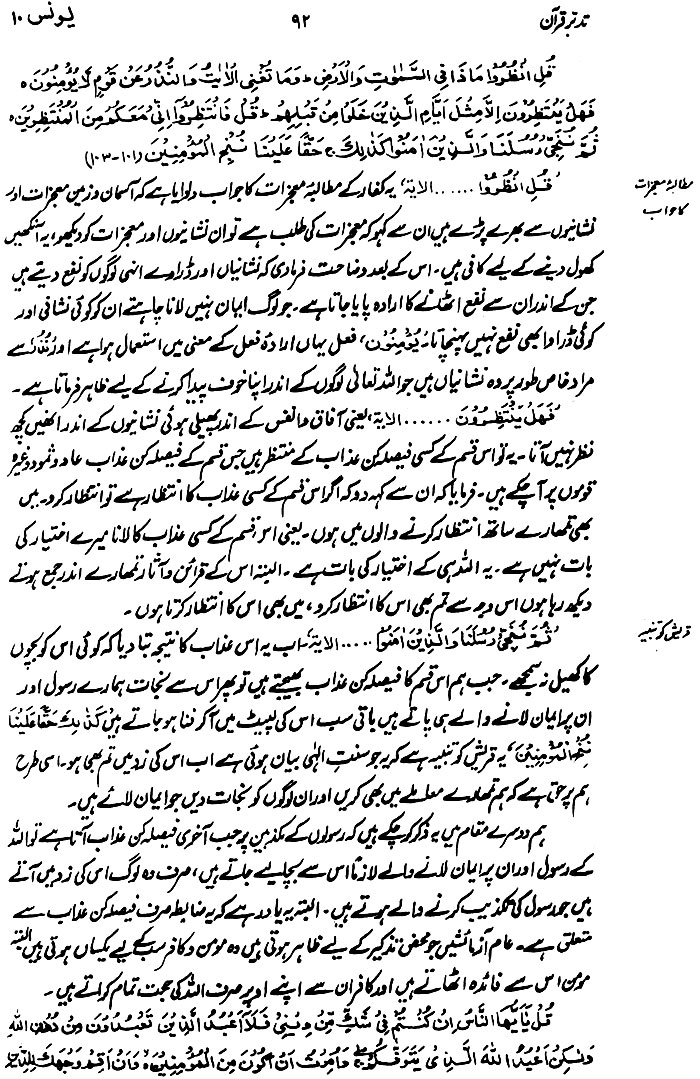 تدبر قرآن
۹۲
یونس ۱۰
قُلِ انْظُرُوْا مَاذَا فِی السَّمٰوٰتِ وَالْاَرْضِ ؕ وَمَا تُغْنِی الْاٰیٰتُ وَالنُّذُرُ عَنْ قَوْمٍ لَّا یُؤْمِنُوْنَ ہ
فَهَلْ یَنْتَظِرُوْنَ اِلَّا مِثْلَ اَیَّامِ الَّذِیْنَ خَلَوْا مِنْ قَبْلِهِمْ ؕ قُلْ فَانْتَظِرُوْٓا اِنِّیْ مَعَكُمْ مِّنَ الْمُنْتَظِرِیْنَ ہ
ثُمَّ نُنَجِّیْ رُسُلَنَا وَالَّذِیْنَ اٰمَنُوْا كَذٰلِكَ ۚ حَقًّا عَلَیْنَا نُنْجِ الْمُؤْمِنِیْنَ (۱۰۱-۱۰۳)
مطالبۂ معجزات
کا جواب
’قُلِ انْظُرُوْا ...... الایۃ‘، یہ کفار کے مطالبۂ معجزات کا جواب دلوایا ہے کہ آسمان و زمین معجزات اور
نشانیوں سے بھرے پڑے ہیں ان سے کہو کہ معجزات کی طلب ہے تو ان نشانیوں اور معجزات کو دیکھو، یہ آنکھیں
کھول دینے کے لیے کافی ہیں۔ اس کے بعد وضاحت فرما دی کہ نشانیاں اور ڈراوے انہی لوگوں کو نفع دیتے ہیں
جن کے اندر ان سے نفع اٹھانے کا ارادہ پایا جاتا ہے۔ جو لوگ ایمان نہیں لانا چاہتے ان کو کوئی نشانی اور
کوئی ڈراوا بھی نفع نہیں پہنچاتا۔ ’یُؤْمِنُوْنَ‘، فعل یہاں ارادۂ فعل کے معنی میں استعمال ہوا ہے اور ’نُذُر‘ سے
مراد خاص طور پر وہ نشانیاں ہیں جو اللہ تعالیٰ لوگوں کے اندر اپنا خوف پیدا کرنے کے لیے ظاہر فرماتا ہے۔
’فَهَلْ یَنْتَظِرُوْنَ ...... الایۃ‘، یعنی آفاق و انفس کے اندر پھیلی ہوئی نشانیوں کے اندر انھیں کچھ
نظر نہیں آتا۔ یہ تو اس قسم کے کسی فیصلہ کن عذاب کے منتظر ہیں جس قسم کے فیصلہ کن عذاب عاد و ثمود وغیرہ
قوموں پر آ چکے ہیں۔ فرمایا کہ ان سے کہہ دو کہ اگر اس قسم کے کسی عذاب کا انتظار ہے تو انتظار کرو۔ میں
بھی تمھارے ساتھ انتظار کرنے والوں میں ہوں۔ یعنی اس قسم کے کسی عذاب کا لانا میرے اختیار کی
بات نہیں ہے۔ یہ اللہ ہی کے اختیار کی بات ہے۔ البتہ اس کے قرائن و آثار تمھارے اندر جمع ہوتے
دیکھ رہا ہوں اس وجہ سے تم بھی اس کا انتظار کرو، میں بھی اس کا انتظار کرتا ہوں۔
قریش کو تنبیہ
’ثُمَّ نُنَجِّیْ رُسُلَنَا وَالَّذِیْنَ اٰمَنُوْا ..... الایۃ‘، اب یہ اس عذاب کا نتیجہ بتا دیا کہ کوئی اس کو بچوں
کا کھیل نہ سمجھے۔ جب ہم اس قسم کا فیصلہ کن عذاب بھیجتے ہیں تو پھر اس سے نجات ہمارے رسول اور
ان پر ایمان لانے والے ہی پاتے ہیں باقی سب اس کی لپیٹ میں آ کر فنا ہو جاتے ہیں ’كَذٰلِكَ حَقًّا عَلَیْنَا
نُنْجِ الْمُؤْمِنِیْنَ‘، یہ قریش کو تنبیہ ہے کہ یہ جو سنتِ الٰہی بیان ہوئی ہے اب اس کی زد میں تم بھی ہو۔ اسی طرح
ہم پر حق ہے کہ ہم تمھارے معاملے میں بھی کریں اور ان لوگوں کو نجات دیں جو ایمان لائے ہیں۔
ہم دوسرے مقام میں یہ ذکر کر چکے ہیں کہ رسولوں کے مکذبین پر جب آخری فیصلہ کن عذاب آتا ہے تو اللہ
کے رسول اور ان پر ایمان لانے والے لازماً اس سے بچا لیے جاتے ہیں، صرف وہ لوگ اس کی زد میں آتے
ہیں جو رسول کی تکذیب کرنے والے ہوتے ہیں۔ البتہ یہ یاد رہے کہ یہ ضابطہ صرف فیصلہ کن عذاب سے
متعلق ہے۔ عام آزمائشیں جو محض تذکیر کے لیے ظاہر ہوتی ہیں وہ مومن و کافر سب کے لیے یکساں ہوتی ہیں البتہ
مومن اس سے فائدہ اٹھاتے ہیں اور کافر ان سے اپنے اوپر صرف اللہ کی حجت تمام کراتے ہیں۔
قُلْ یٰٓاَیُّهَا النَّاسُ اِنْ كُنْتُمْ فِیْ شَكٍّ مِّنْ دِیْنِیْ فَلَآ اَعْبُدُ الَّذِیْنَ تَعْبُدُوْنَ مِنْ دُوْنِ اللّٰهِ
وَلٰكِنْ اَعْبُدُ اللّٰهَ الَّذِیْ یَتَوَفّٰىكُمْ ۚ وَاُمِرْتُ اَنْ اَكُوْنَ مِنَ الْمُؤْمِنِیْنَ ہ وَاَنْ اَقِمْ وَجْهَكَ لِلدِّیْنِ